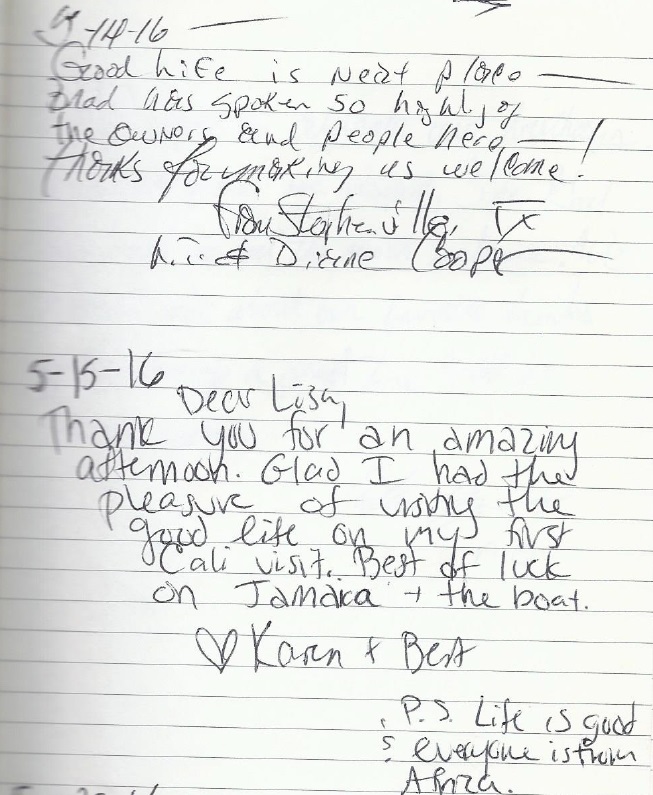 5-14-16
Good Life is Neat place
Brad has spoken so highly of
the owners and people here !
Thanks for making us welcome!
From Stephenville, TX
& Diane Cooper
5-15-16
Dear Lisa,
Thank you for an amazing
afternoon. Glad I had the
pleasure of visiting the
good life on my first
Cali visit. Best of luck
on Jamaica + the boat.
♡ Karen + Bert
P.S. Life is good
everyone is from
Africa.